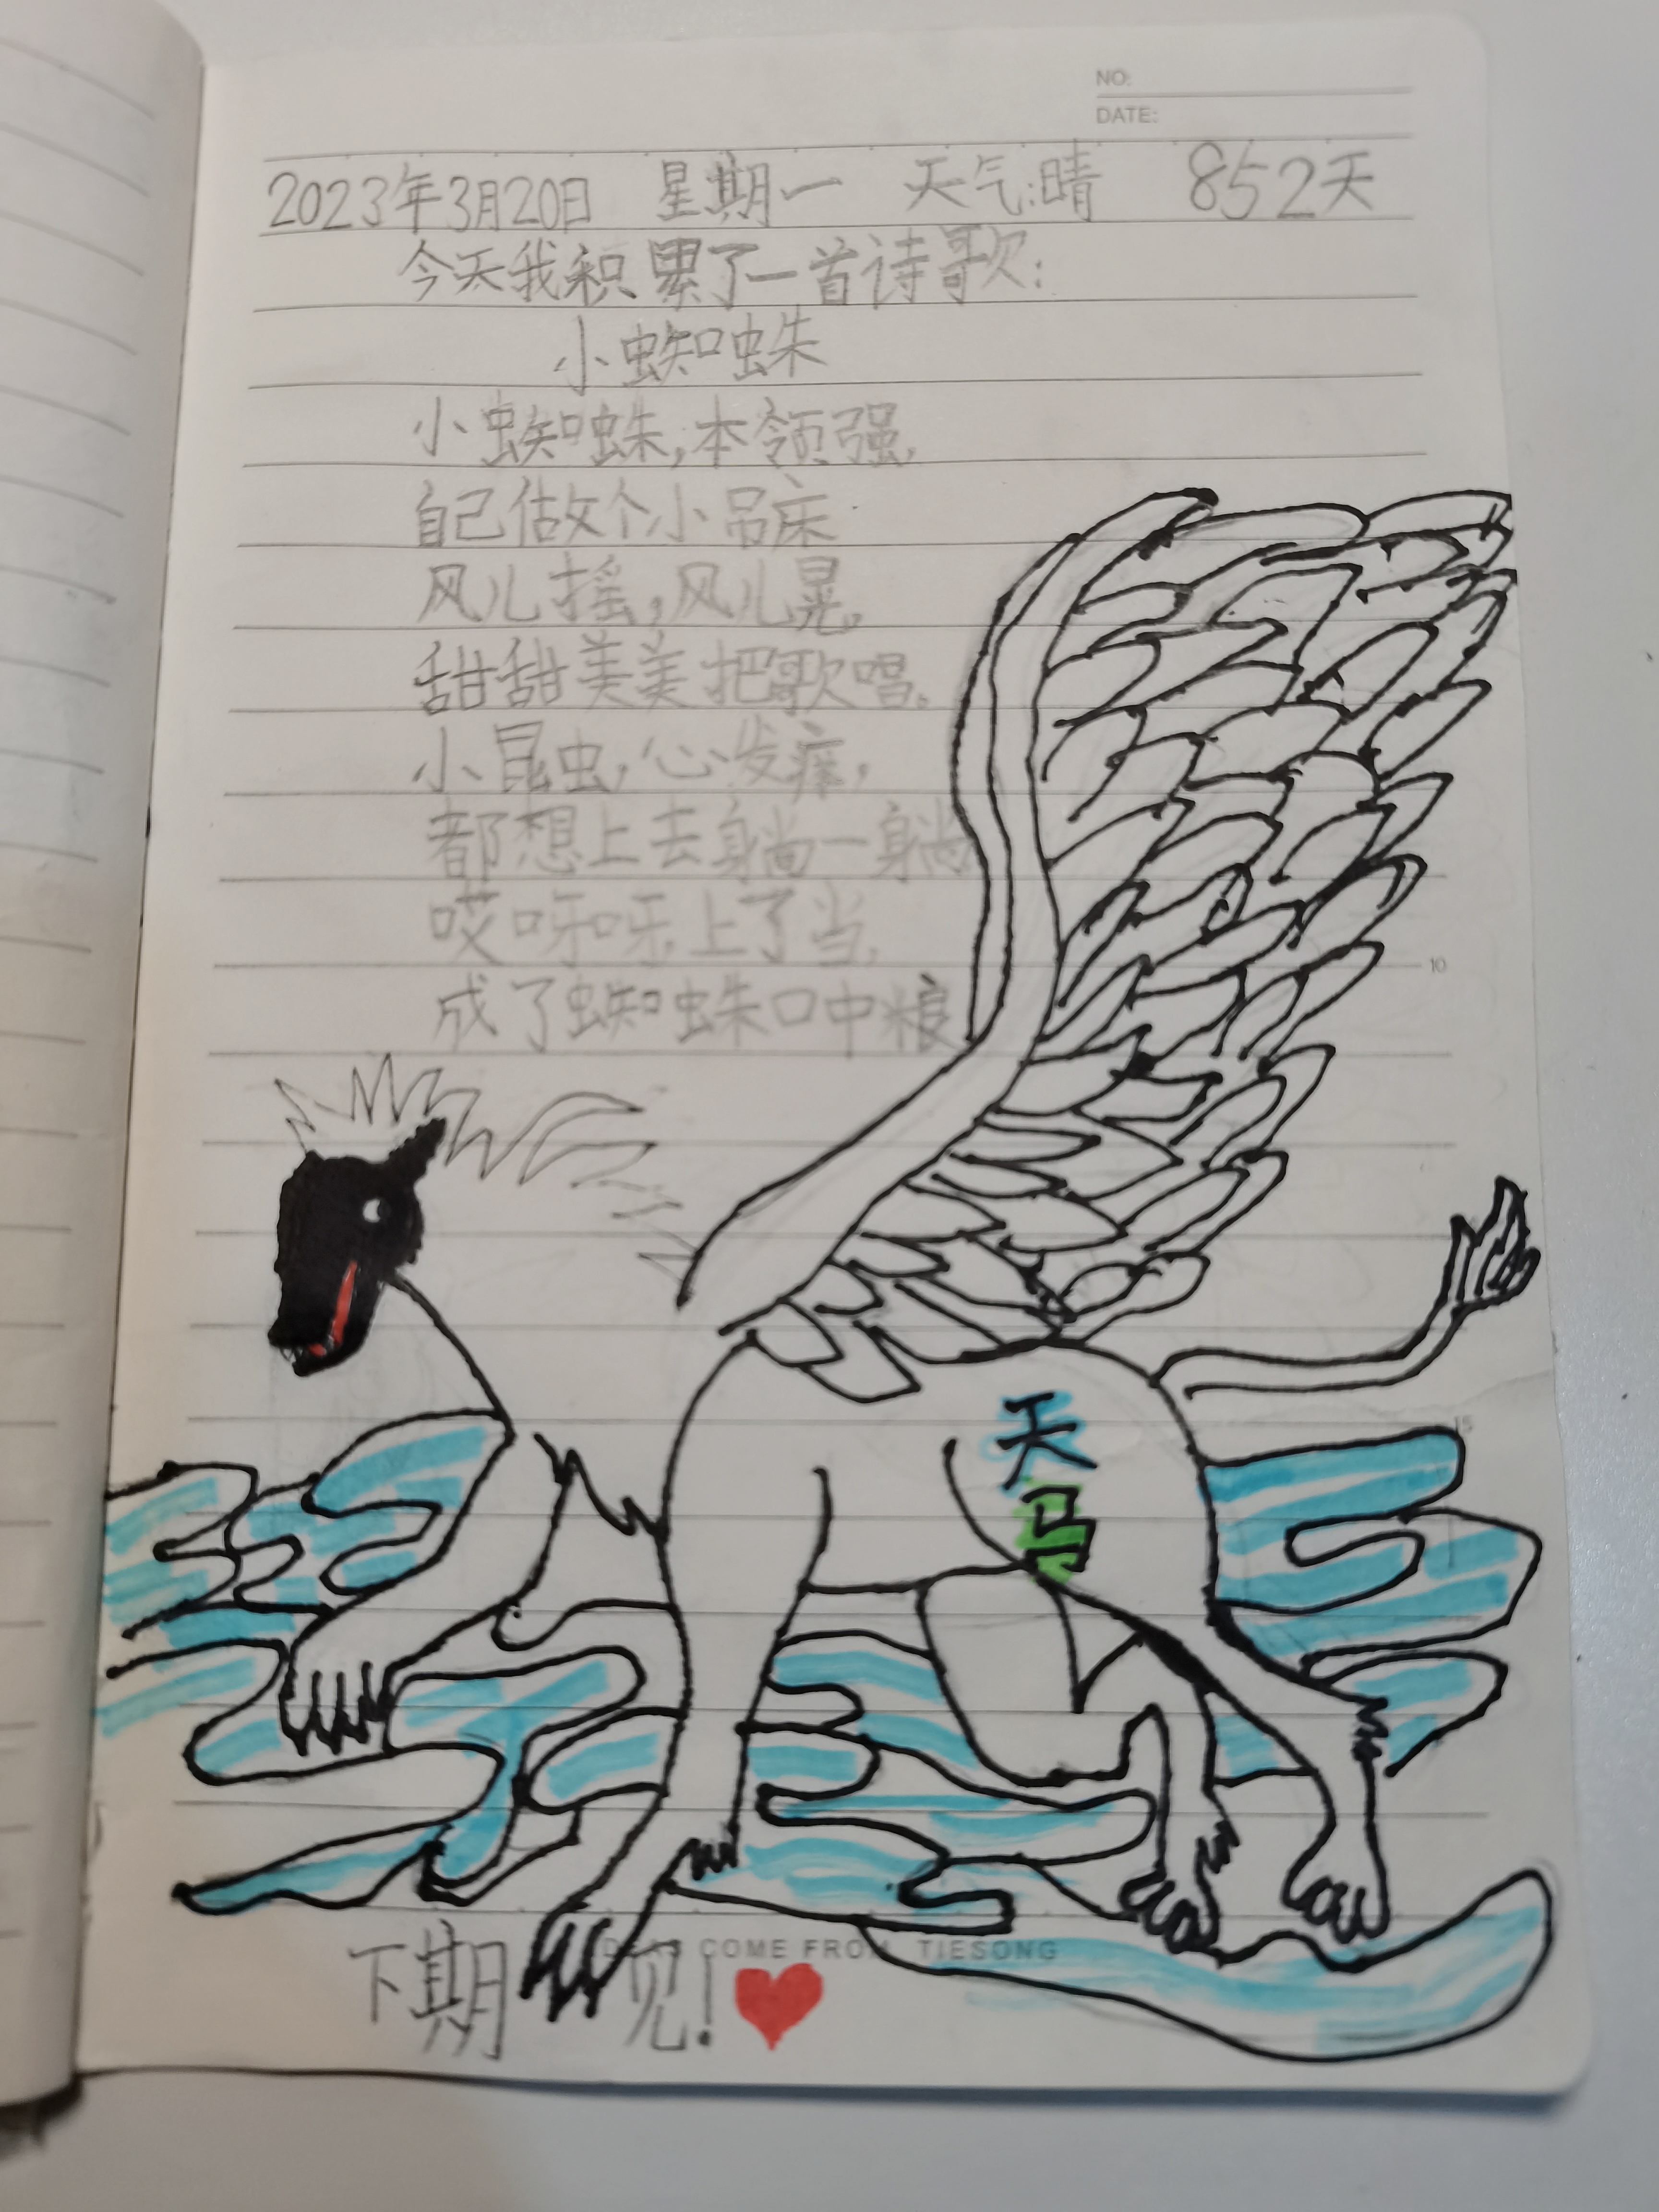 NO:
DATE:
2023年3月20日 星期一 天气:晴 852天
今天我积累了一首诗歌:
小蜘蛛
小蜘蛛,本领强,
自己做个小吊床
风儿摇,风儿晃,
甜甜美美把歌唱。
小昆虫,心发痒,
都想上去躺一躺
哎呀呀,上了当,
成了蜘蛛口中粮
10
天
马
15
COME FROM TIESONG
下期 见!